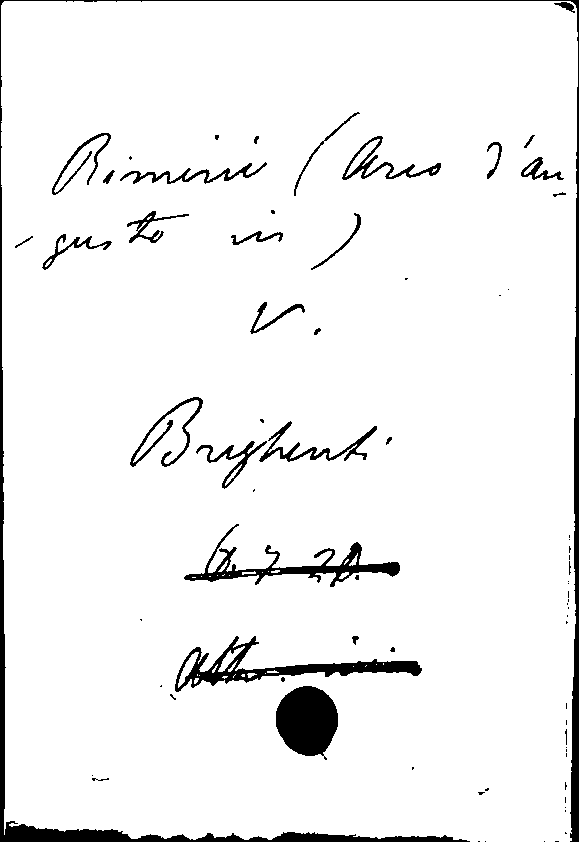 Rimini (Arco d'au-
-gusto in)
V.
Brighenti